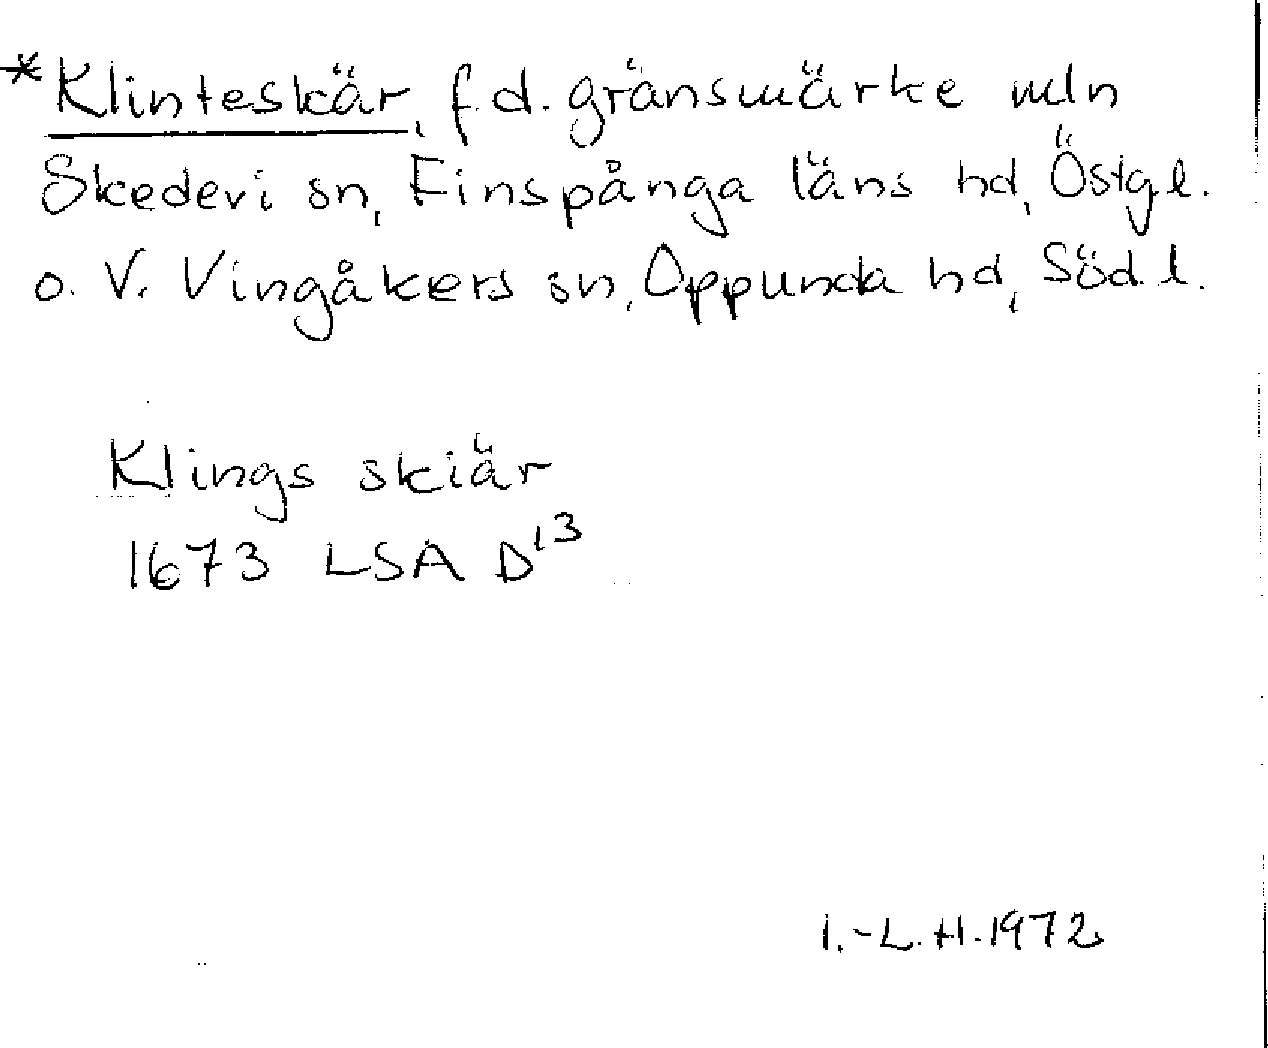 *Klinteskär, f.d. gränsmärke mln
Skedevi sn, Finspånga läns hd, Östg.l.
o. V. Vingåkers sn, Oppunda hd, Söd.l.
Klings skiär
1673 LSA D13
I.-L.H. 1972